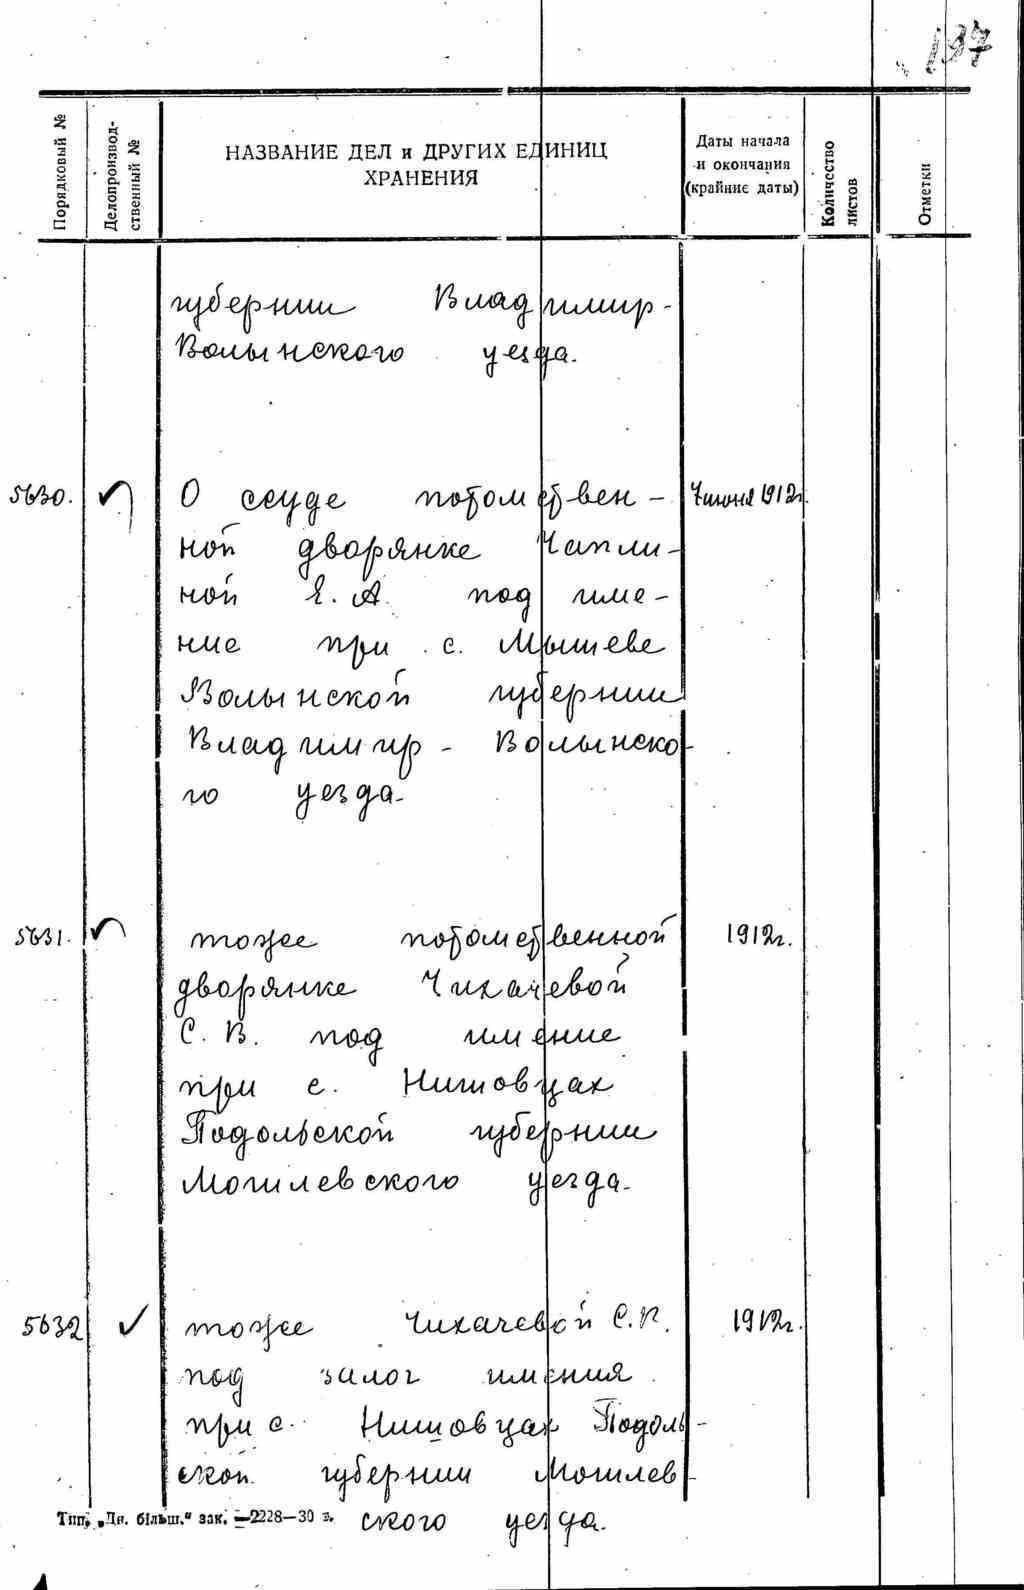 137
Порядковый №
Делопроизвод-
ственный №
НАЗВАНИЕ ДЕЛ и ДРУГИХ ЕДИНИЦ
ХРАНЕНИЯ
Даты начала
и окончания
(крайние даты)
Количество
листов
Отметки
губернии Владимир-
Волынского уезда.
5630. О ссуде потомствен- 7 июня 1912г.
ной дворянке Чапли-
ной Е. А. под име-
ние при с. Мышеве
Волынской губернии
Владимир-Волынско-
го уезда.
5631. тоже потомственной 1912г.
дворянке Чихачевой
С. В. под имение
при с. Нишовцах
Подольской губернии
Могилевского уезда.
5632 тоже Чихачевой С. 1912г.
под залог имения
при с. Нишовцах Подоль-
ской губернии Могилев-
ского уезда.
Тип. „Дн. більш." зак. 2228—30 г.